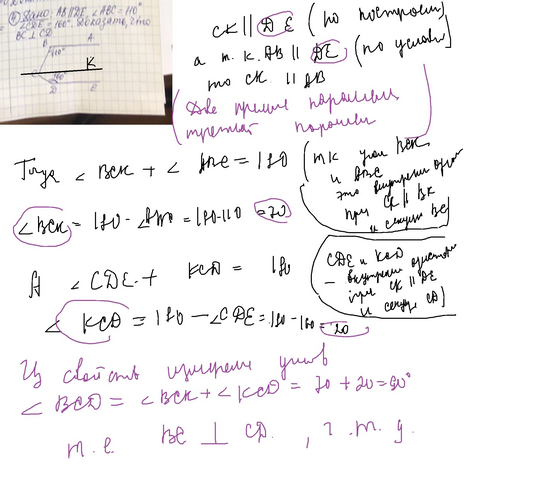 Дано: AB∥DE, ∠ABC=110°
∠CDE=160°. Доказать, что
BC ⊥ CD.
B A
110°
K
160°
D E
CK ∥ DE (по построен)
а т.к. AB ∥ DE (по услов)
то CK ∥ AB
(Две прямые параллельн
третьей параллел)
Тогда ∠ BCK + ∠ ABC = 180
(т.к углы BCK
и ABC
это внутрен одност
при CK ∥ BK
и секущ BC)
∠BCK = 180 - ∠ABC = 180-110 =70
А ∠ CDE + KCD = 180
CDE и KCD
— внутрен одностор
при CK ∥ DE
и секущ CD)
∠ KCD = 180 - ∠CDE = 180-160 = 20
Из свойств измерения углов
∠ BCD = ∠BCK + ∠KCD = 70 + 20 = 90°
т.е. BC ⊥ CD. , ч.т.д.